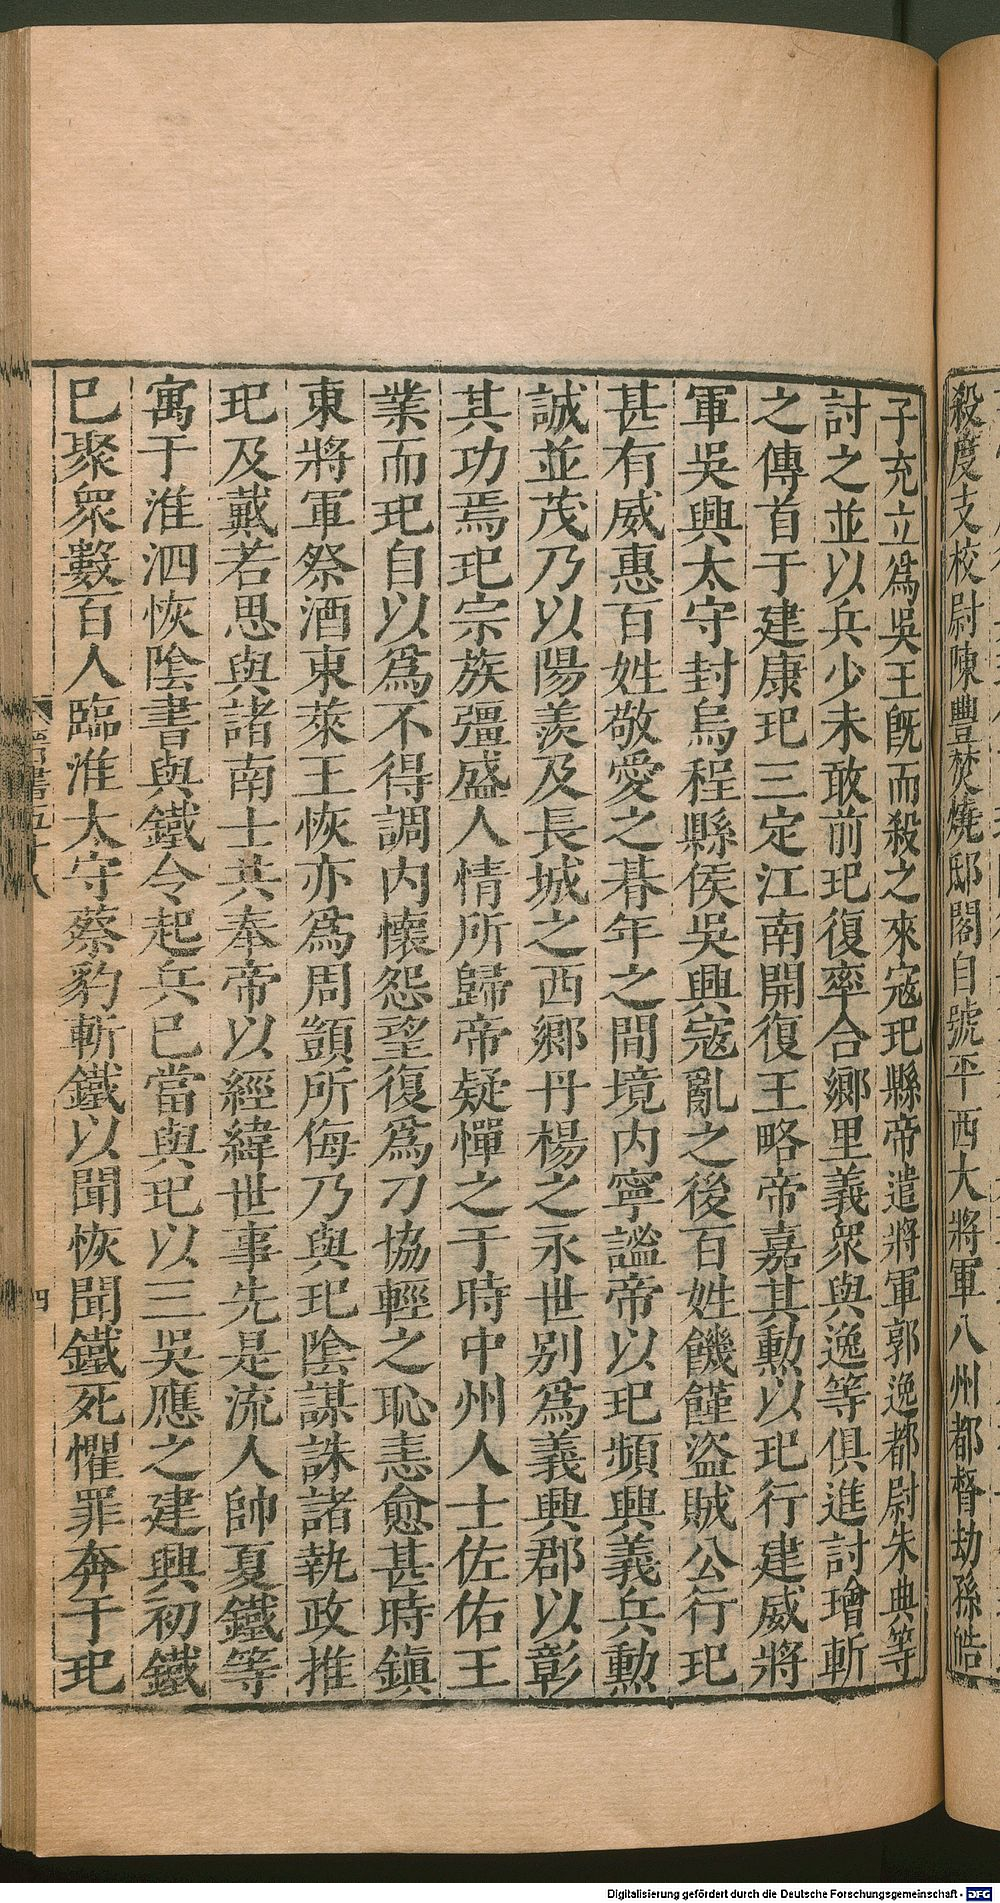 殺度支校尉陳豐焚燒邸閣自號平西大將軍八州都督劫孫皓
子充立爲吳王旣而殺之來寇玘縣帝遣將軍郭逸都尉朱典等
討之並以兵少未敢前玘復率合鄉里義衆與逸等俱進討璯斬
之傳首于建康玘三定江南開復王略帝嘉其勳以玘行建威將
軍吳興太守封烏程縣侯吳興寇亂之後百姓饑饉盜賊公行玘
甚有威惠百姓敬愛之朞年之間境内寧謐帝以玘頻興義兵勲
誠並茂乃以陽羨及長城之西鄉丹楊之永世别爲義興郡以彰
其功焉玘宗族彊盛人情所歸帝疑憚之于時中州人士佐佑王
業而玘自以爲不得調内懷怨望復爲刁協輕之恥恚愈甚時鎭
東將軍祭酒東萊王恢亦爲周顗所侮乃與玘陰謀誅諸執政推
玘及戴若思與諸南士共奉帝以經緯世事先是流人帥夏鐵等
寓于淮泗恢陰書與鐵令起兵巳當與玘以三吳應之建興初鐵
巳聚衆數百人臨淮太守蔡豹斬鐵以聞恢聞鐵死懼罪奔于玘
四
Digitalisierung gefördert durch die Deutsche Forschungsgemeinschaft - DFG